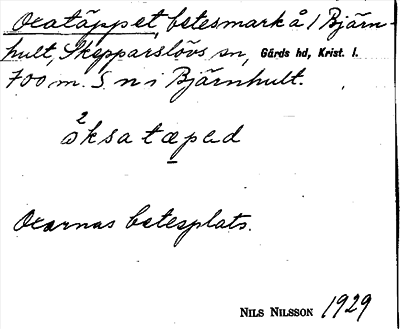 Oxatäppet, betesmark å 1 Bjärn-
hult, Skepparslövs sn, Gärds hd, Krist. l.
700 m. S n i Bjärnhult.
²åksatæpəd
Oxarnas betesplats.
NILS NILSSON 1929